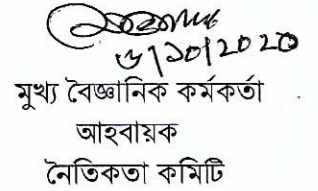 ৬/১০/২০২০
মুখ্য বৈজ্ঞানিক কর্মকর্তা
আহবায়ক
নৈতিকতা কমিটি